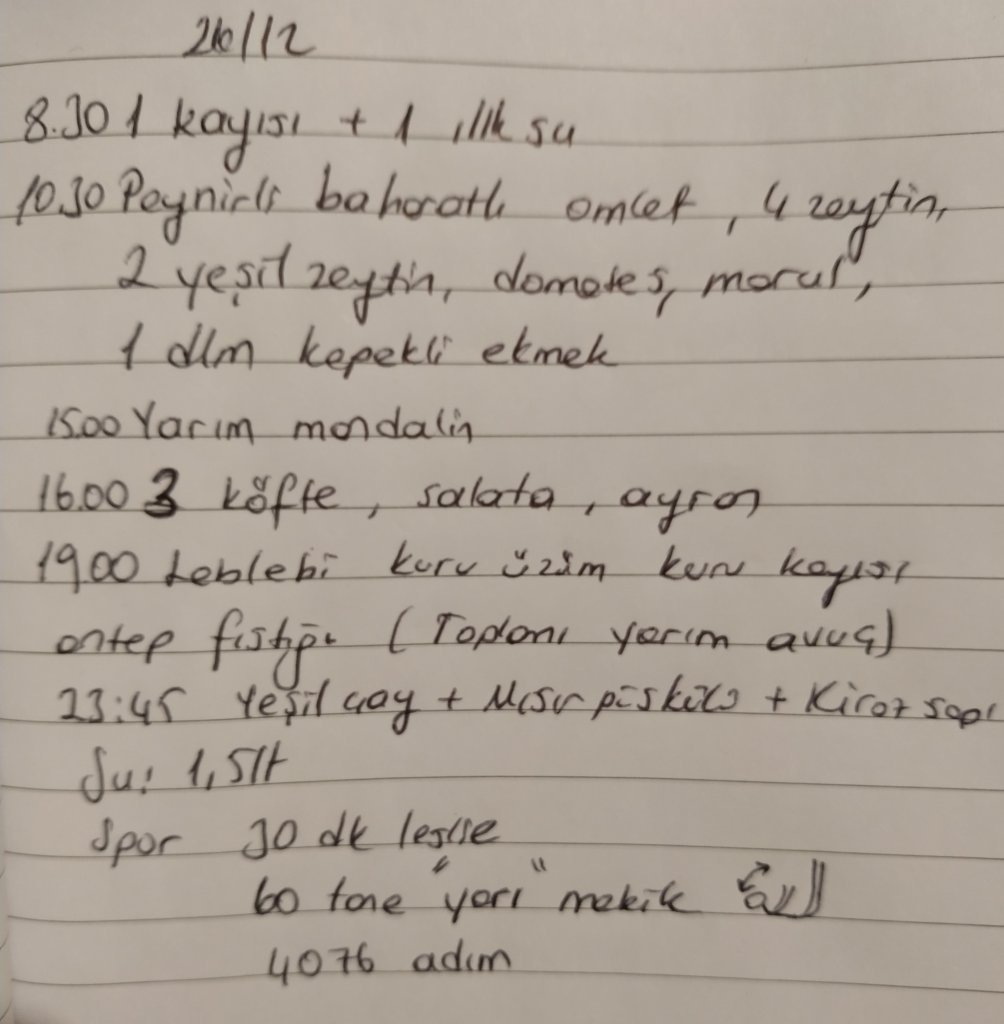 26/12
8.30 1 kayısı + 1 ılık su
10.30 Peynirli baharatlı omlet, 4 zeytin,
2 yeşil zeytin, domates, marul,
1 dlm kepekli ekmek
15.00 Yarım mandalin
16.00 3 köfte, salata, ayran
19.00 Leblebi kuru üzüm kuru kayısı
antep fıstığı (Toplamı yarım avuç)
23:45 Yeşil çay + Mısır püskülü + Kiraz sapı
Su: 1,5 lt
Spor 30 dk leslie
60 tane "yarı" mekik
4076 adım